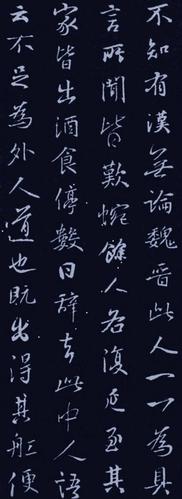 不知有漢無論魏晉此人一一為具
言所聞皆歎惋餘人各復延至其
家皆出酒食停數日辭去此中人語
云不足為外人道也既出得其船便